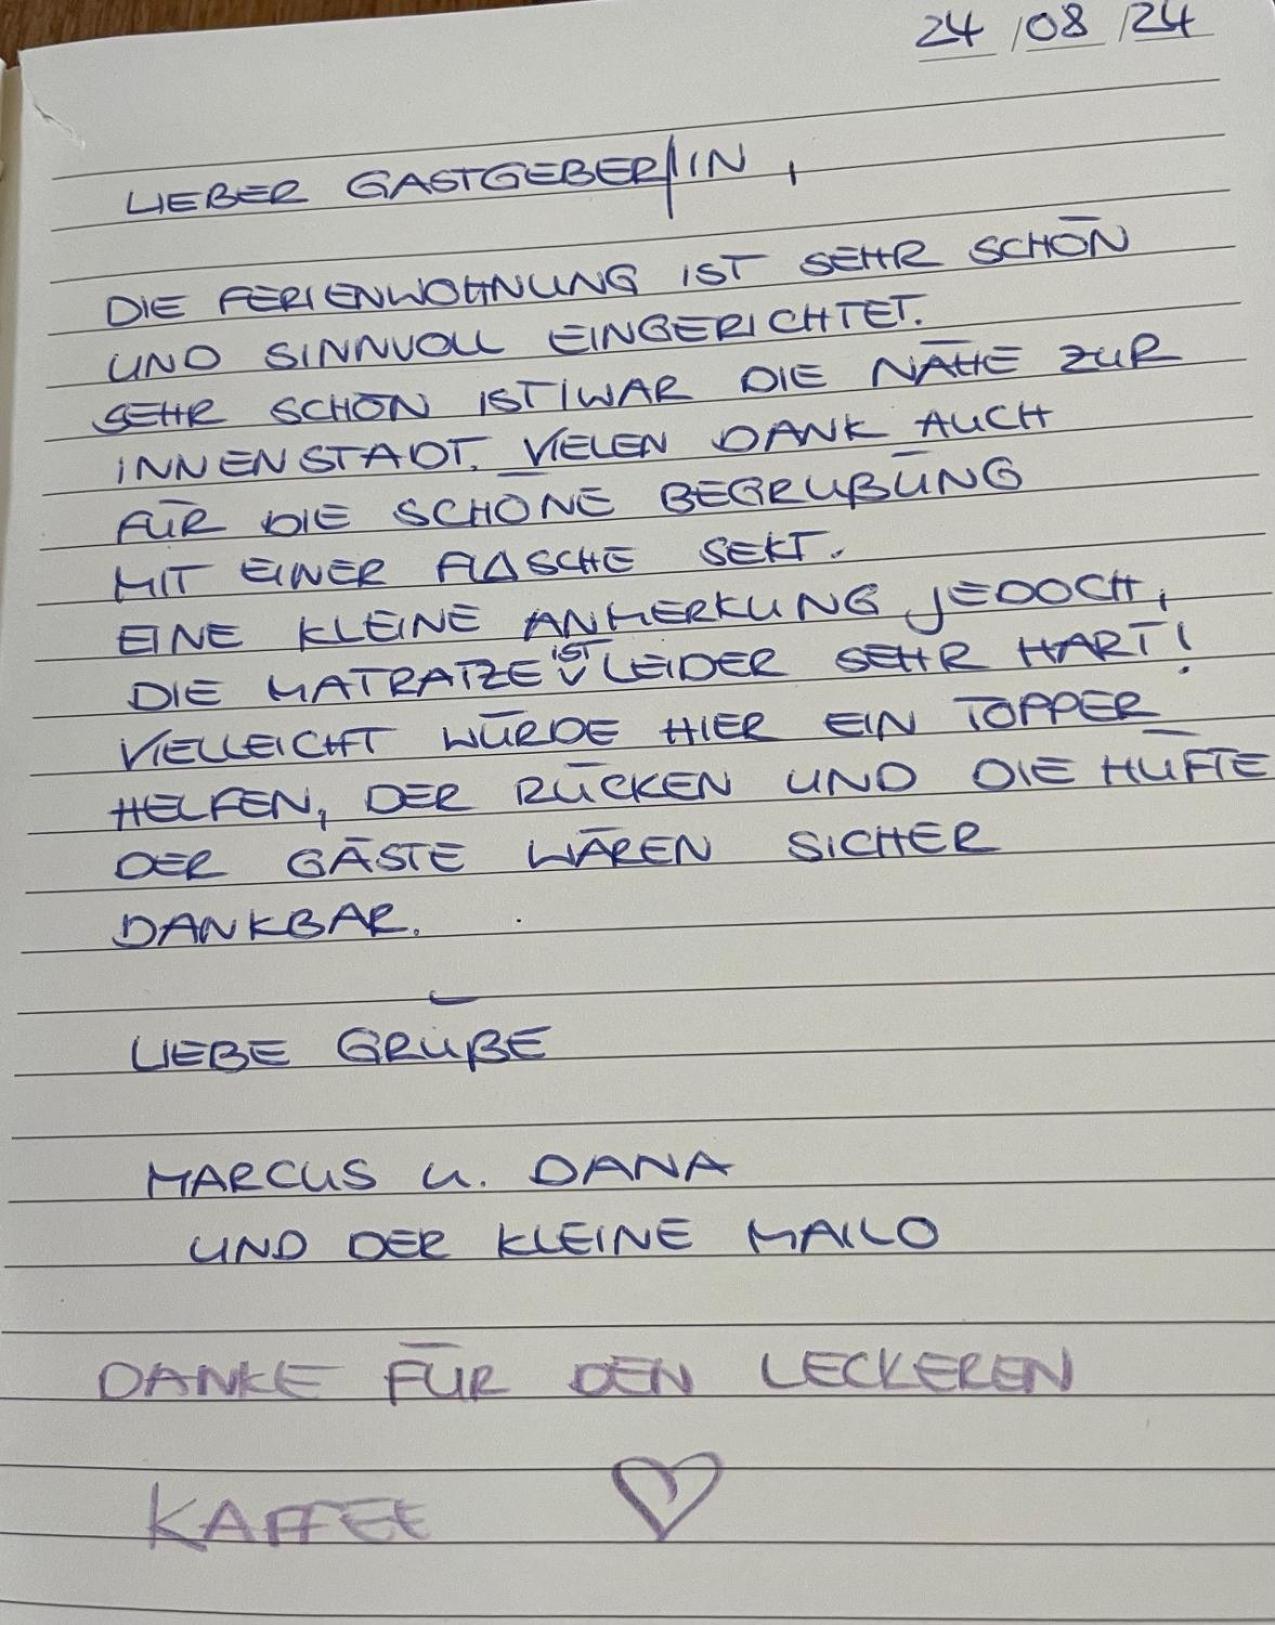 24/08/24
LIEBER GASTGEBER/IN,
DIE FERIENWOHNUNG IST SEHR SCHÖN
UND SINNVOLL EINGERICHTET.
SEHR SCHÖN IST/WAR DIE NÄHE ZUR
INNENSTADT. VIELEN DANK AUCH
FÜR DIE SCHÖNE BEGRÜßUNG
MIT EINER FLASCHE SEKT.
EINE KLEINE ANMERKUNG JEDOCH,
DIE MATRATZE IST LEIDER SEHR HART!
VIELLEICHT WÜRDE HIER EIN TOPPER
HELFEN, DER RÜCKEN UND DIE HÜFTE
DER GÄSTE WÄREN SICHER
DANKBAR.
LIEBE GRÜßE
MARCUS u. DANA
UND DER KLEINE MAILO
DANKE FÜR DEN LECKEREN
KAFFEE ♡